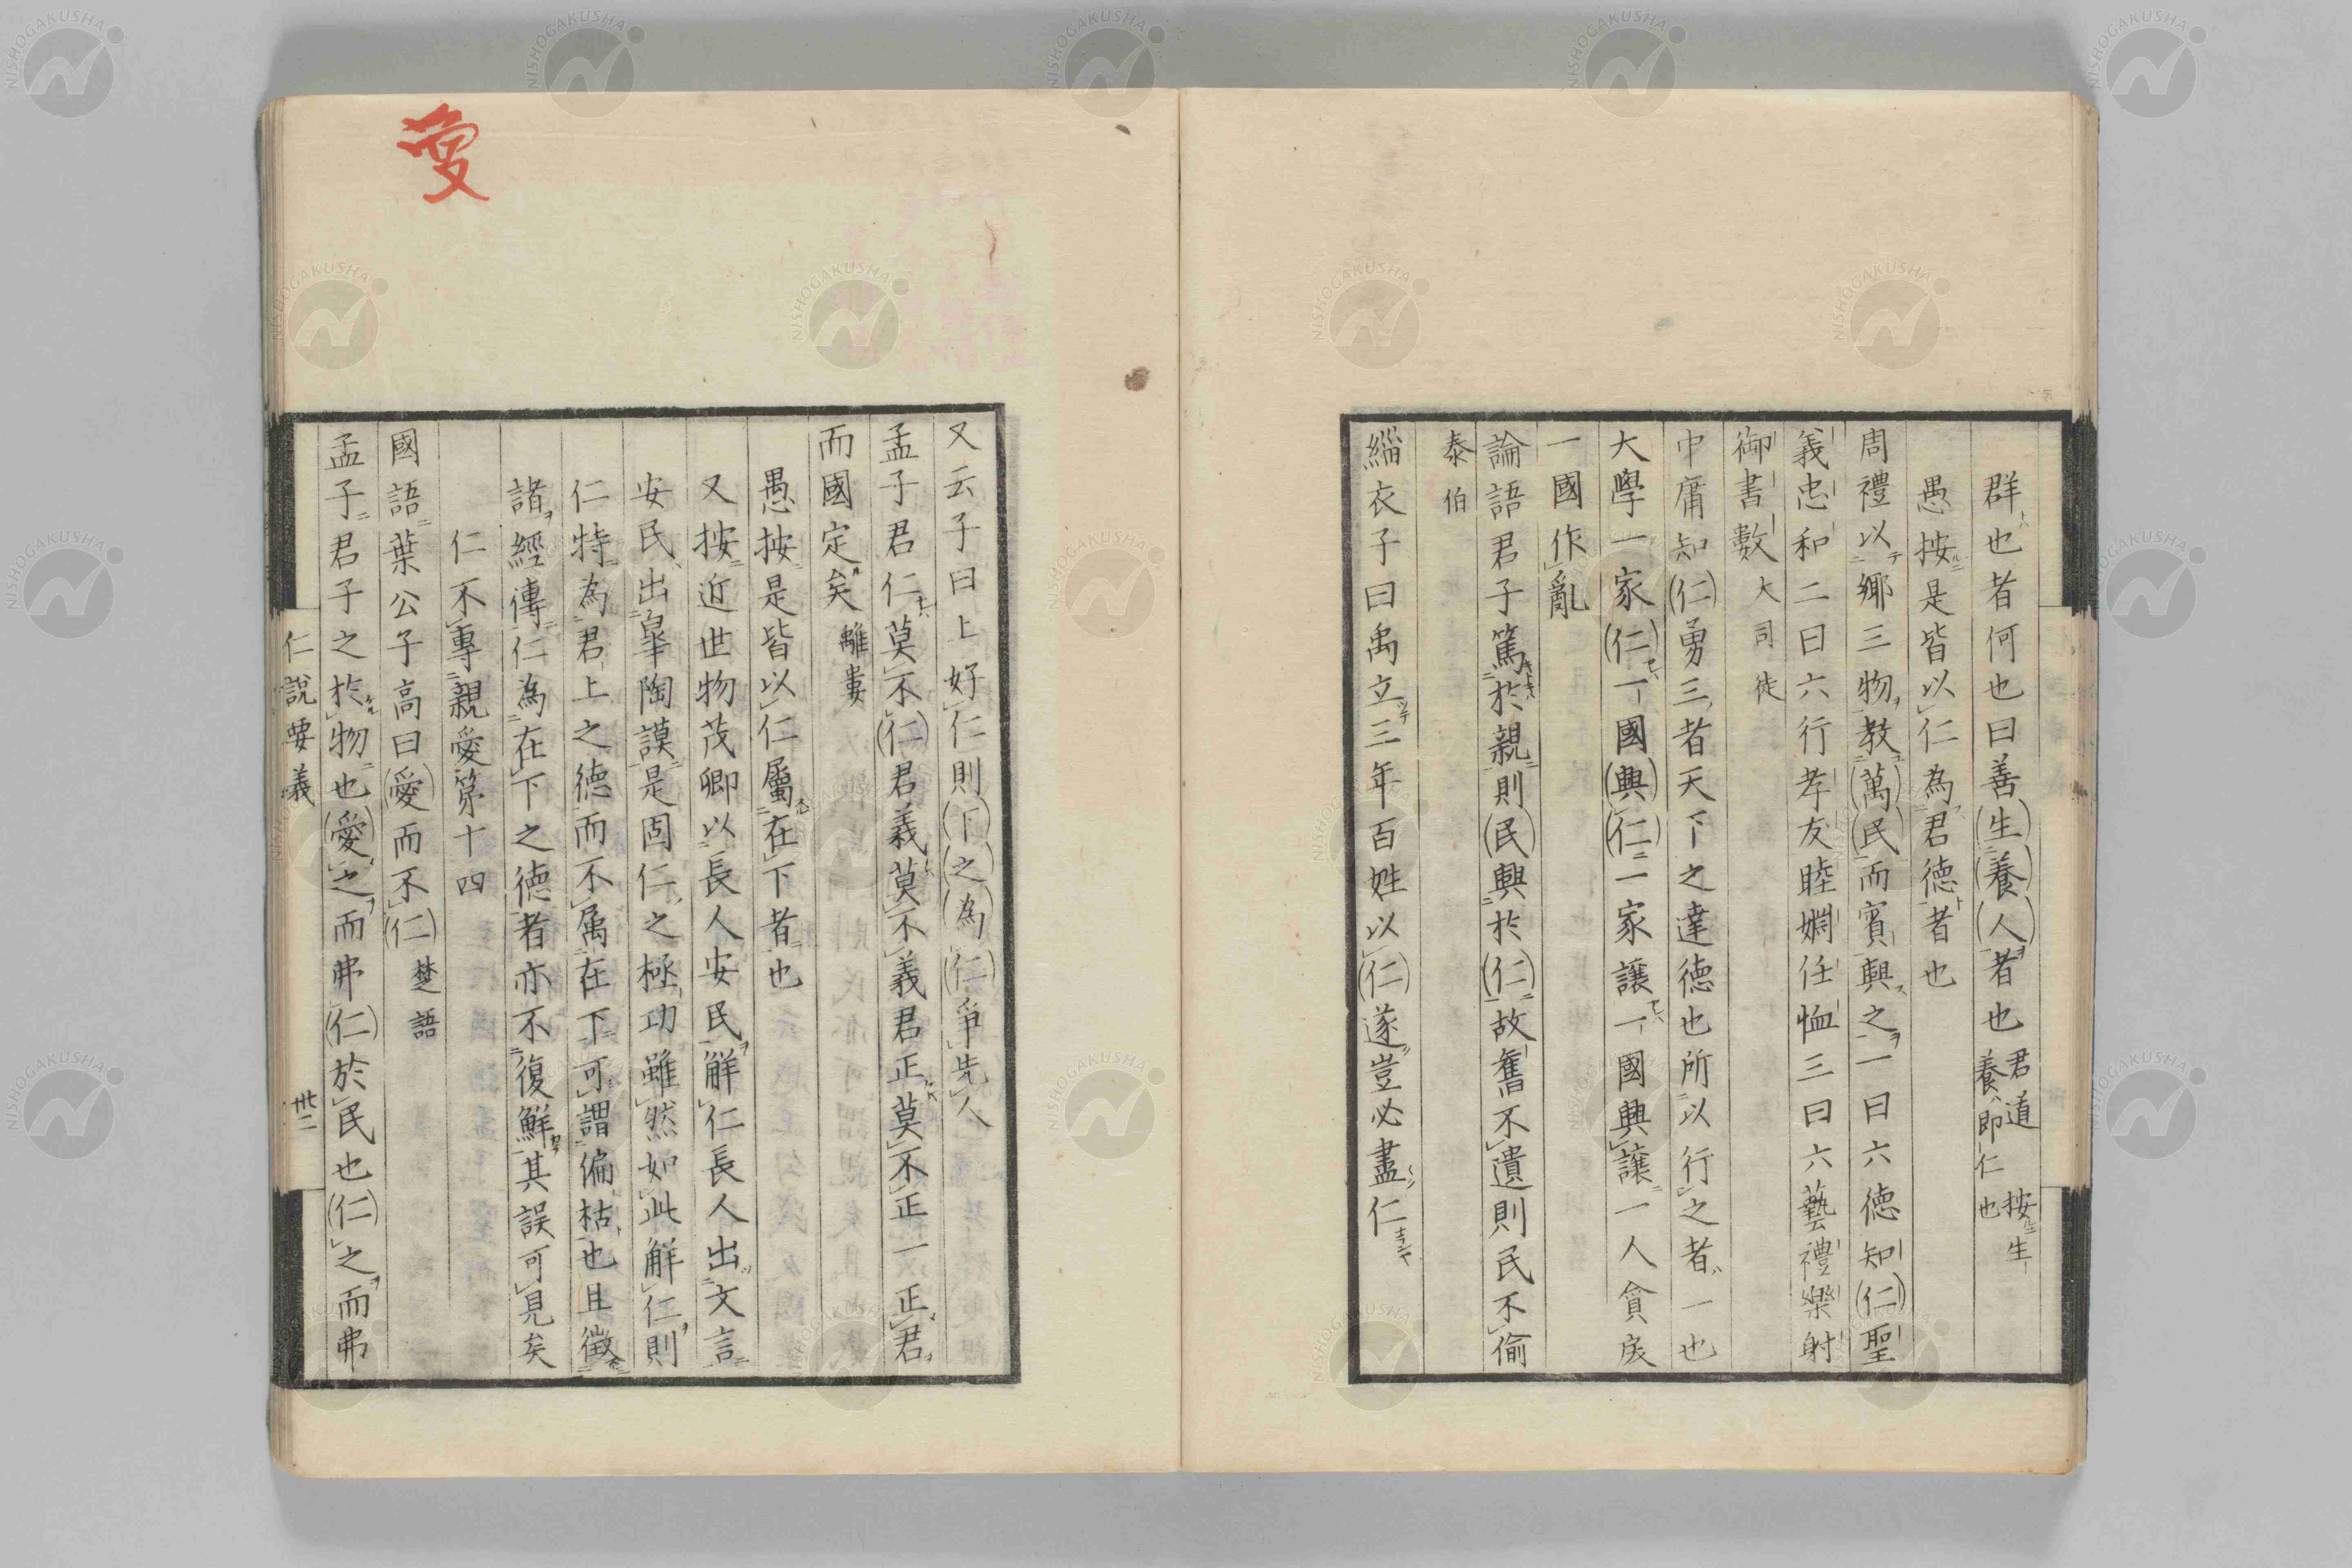 群也者何也曰善生養人者也君道 按生養即仁也
愚按是皆以仁為君徳者也
周禮以鄉三物教萬民而賓興之一曰六徳知仁聖
義忠和二曰六行孝友睦婣任恤三曰六藝禮樂射
御書數大司徒
中庸知仁勇三者天下之達徳也所以行之者一也
大學一家仁一國興仁一家譲一國興譲一人貪戾
一國作亂
論語君子篤於親則民興於仁故舊不遺則民不偷
泰伯
緇衣子曰禹立三年百姓以仁遂豈必盡仁
又云子曰上好仁則下之為仁爭先人
孟子君仁莫不仁君義莫不義君正莫不正一正君
而國定矣離婁
愚按是皆以仁屬在下者也
又按近世物茂卿以長人安民解仁長人出文言
安民出皐陶謨是固仁之極功雖然如此解仁則
仁特為君上之徳而不属在下可謂偏枯也且徵
諸經傳仁為在下之徳者亦不復鮮其誤可見矣
仁不專親愛第十四
國語葉公子高曰愛而不仁楚語
孟子君子之於物也愛之而弗仁於民也仁之而弗
仁說要義
卅二
愛
NISHOGAKUSHA